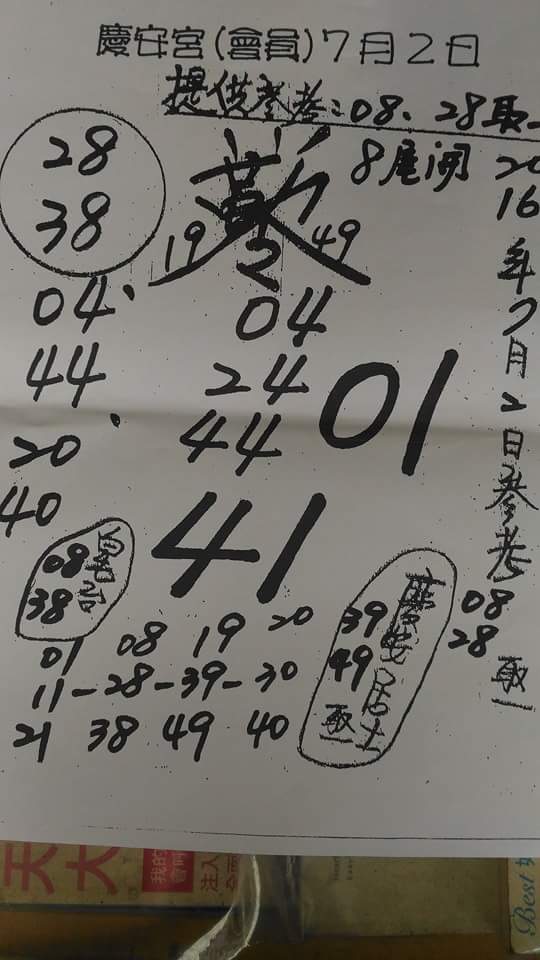 慶安宮(會員)7月2日
提供參考:08、28取一
8尾開
28
38
19 2 49
04、
44
20
40
04
24
44
01
41
2016年7月2日參考
08
28
取一
08
38
39
49
慶安居士
取一
01 08 19 20
11-28-39-30
21 38 49 40
天
大
我的
注入
Best